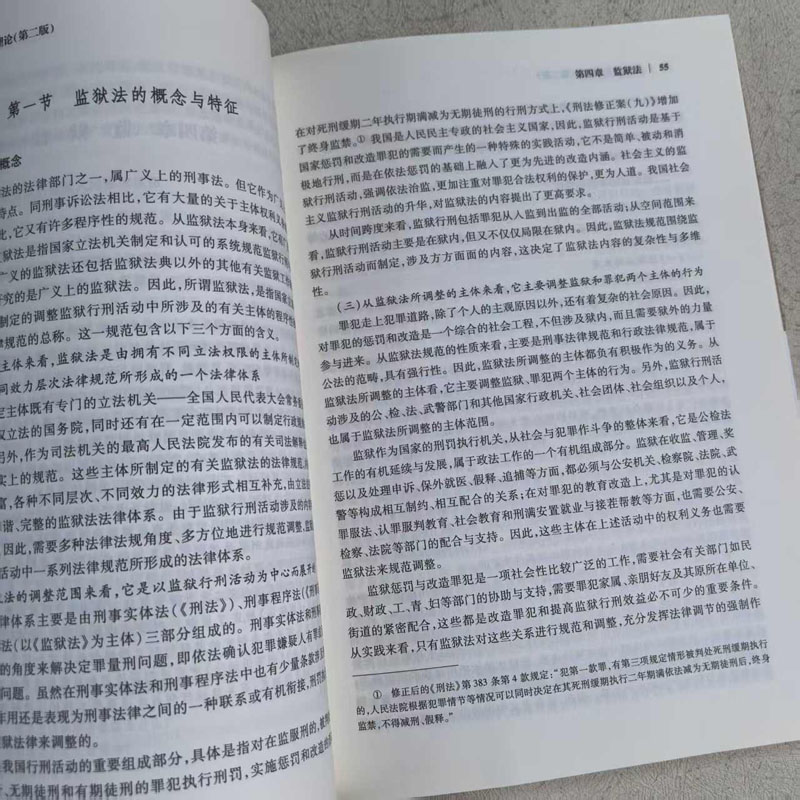 论(第二版)
第一节 监狱法的概念与特征
概念
法的法律部门之一，属广义上的刑事法。但它作为广
特点。同刑事诉讼法相比，它有大量的关于主体权利义务
比，它又有许多程序性的规范。从监狱法本身来看，它
狱法是指国家立法机关制定和认可的系统规范监狱行刑
广义的监狱法还包括监狱法典以外的其他有关监狱工作
研究的是广义上的监狱法。因此，所谓监狱法，是指国家
制定的调整监狱行刑活动中所涉及的有关主体的程序性
规范的总称。这一规范包含以下三个方面的含义。
主体来看，监狱法是由拥有不同立法权限的主体所制定
同效力层次法律规范所形成的一个法律体系
定主体既有专门的立法机关——全国人民代表大会常务
权立法的国务院，同时还有在一定范围内可以制定行政规
另外，作为司法机关的最高人民法院发布的有关司法解释
实上的规范。这些主体所制定的有关监狱法的法律规范，
富，各种不同层次、不同效力的法律形式相互补充，由立法
谐、完整的监狱法法律体系。由于监狱行刑活动涉及的内容
因此，需要多种法律法规角度、多方位地进行规范调整，监
活动中一系列法律规范所形成的法律体系。
法的调整范围来看，它是以监狱行刑活动为中心而展开
律体系主要是由刑事实体法(《刑法》)、刑事程序法(《刑
法(以《监狱法》为主体)三部分组成的。刑事实体法和刑
的角度来解决定罪量刑问题，即依法确认犯罪嫌疑人有罪
问题。虽然在刑事实体法和刑事程序法中也有少量条款涉
作用还是表现为刑事法律之间的一种联系或有机衔接，刑罚
狱法律来调整的。
我国行刑活动的重要组成部分，具体是指对在监服刑的，被判
、无期徒刑和有期徒刑的罪犯执行刑罚，实施惩罚和改造的
第四章 监狱法 | 55
在对死刑缓期二年执行期满减为无期徒刑的行刑方式上，《刑法修正案(九)》增加
了终身监禁。① 我国是人民民主专政的社会主义国家，因此，监狱行刑活动是基于
国家惩罚和改造罪犯的需要而产生的一种特殊的实践活动，它不是简单、被动和消
极地行刑，而是在依法惩罚的基础上融入了更为先进的改造内涵。社会主义的监
狱行刑活动，强调依法治监，更加注重对罪犯合法权利的保护，更为人道。我国社会
主义监狱行刑活动的升华，对监狱法的内容提出了更高要求。
从时间跨度来看，监狱行刑包括罪犯从入监到出监的全部活动；从空间范围来
看，监狱行刑活动主要是在狱内，但又不仅仅局限在狱内。因此，监狱法规范围绕监
狱行刑活动而制定，涉及方方面面的内容，这决定了监狱法内容的复杂性与多维
性。
(三)从监狱法所调整的主体来看，它主要调整监狱和罪犯两个主体的行为
罪犯走上犯罪道路，除了个人的主观原因以外，还有着复杂的社会原因。因此，
对罪犯的惩罚和改造是一个综合的社会工程，不但涉及狱内，而且需要狱外的力量
参与进来。从监狱法规范的性质来看，主要是刑事法律规范和行政法律规范，属于
公法的范畴，具有强行性。因此，监狱法所调整的主体都负有积极作为的义务。从
监狱法所调整的主体看，它主要调整监狱、罪犯两个主体的行为。另外，监狱行刑活
动涉及的公、检、法、武警部门和其他国家行政机关、社会团体、社会组织以及个人，
也属于监狱法所调整的主体范围。
监狱作为国家的刑罚执行机关，从社会与犯罪作斗争的整体来看，它是公检法
工作的有机延续与发展，属于政法工作的一个有机组成部分。监狱在收监、管理、奖
惩以及处理申诉、保外就医、假释、追捕等方面，都必须与公安机关、检察院、法院、武
警等构成相互制约、相互配合的关系；在对罪犯的教育改造上，尤其是对罪犯的认
罪服法、认罪服判教育、社会教育和刑满安置就业与接茬帮教等方面，也需要公安、
检察、法院等部门的配合与支持。因此，这些主体在上述活动中的权利义务也需要
监狱法来规范调整。
监狱惩罚与改造罪犯是一项社会性比较广泛的工作，需要社会有关部门如民
政、财政、工、青、妇等部门的协助与支持，需要罪犯家属、亲朋好友及其原所在单位、
街道的紧密配合，这些都是改造罪犯和提高监狱行刑效益必不可少的重要条件。
从实践来看，只有监狱法对这些关系进行规范和调整，充分发挥法律调节的强制作
① 修正后的《刑法》第 383 条第 4 款规定：“犯第一款罪，有第三项规定情形被判处死刑缓期执行
的，人民法院根据犯罪情节等情况可以同时决定在其死刑缓期执行二年期满依法减为无期徒刑后，终身
监禁，不得减刑、假释。”